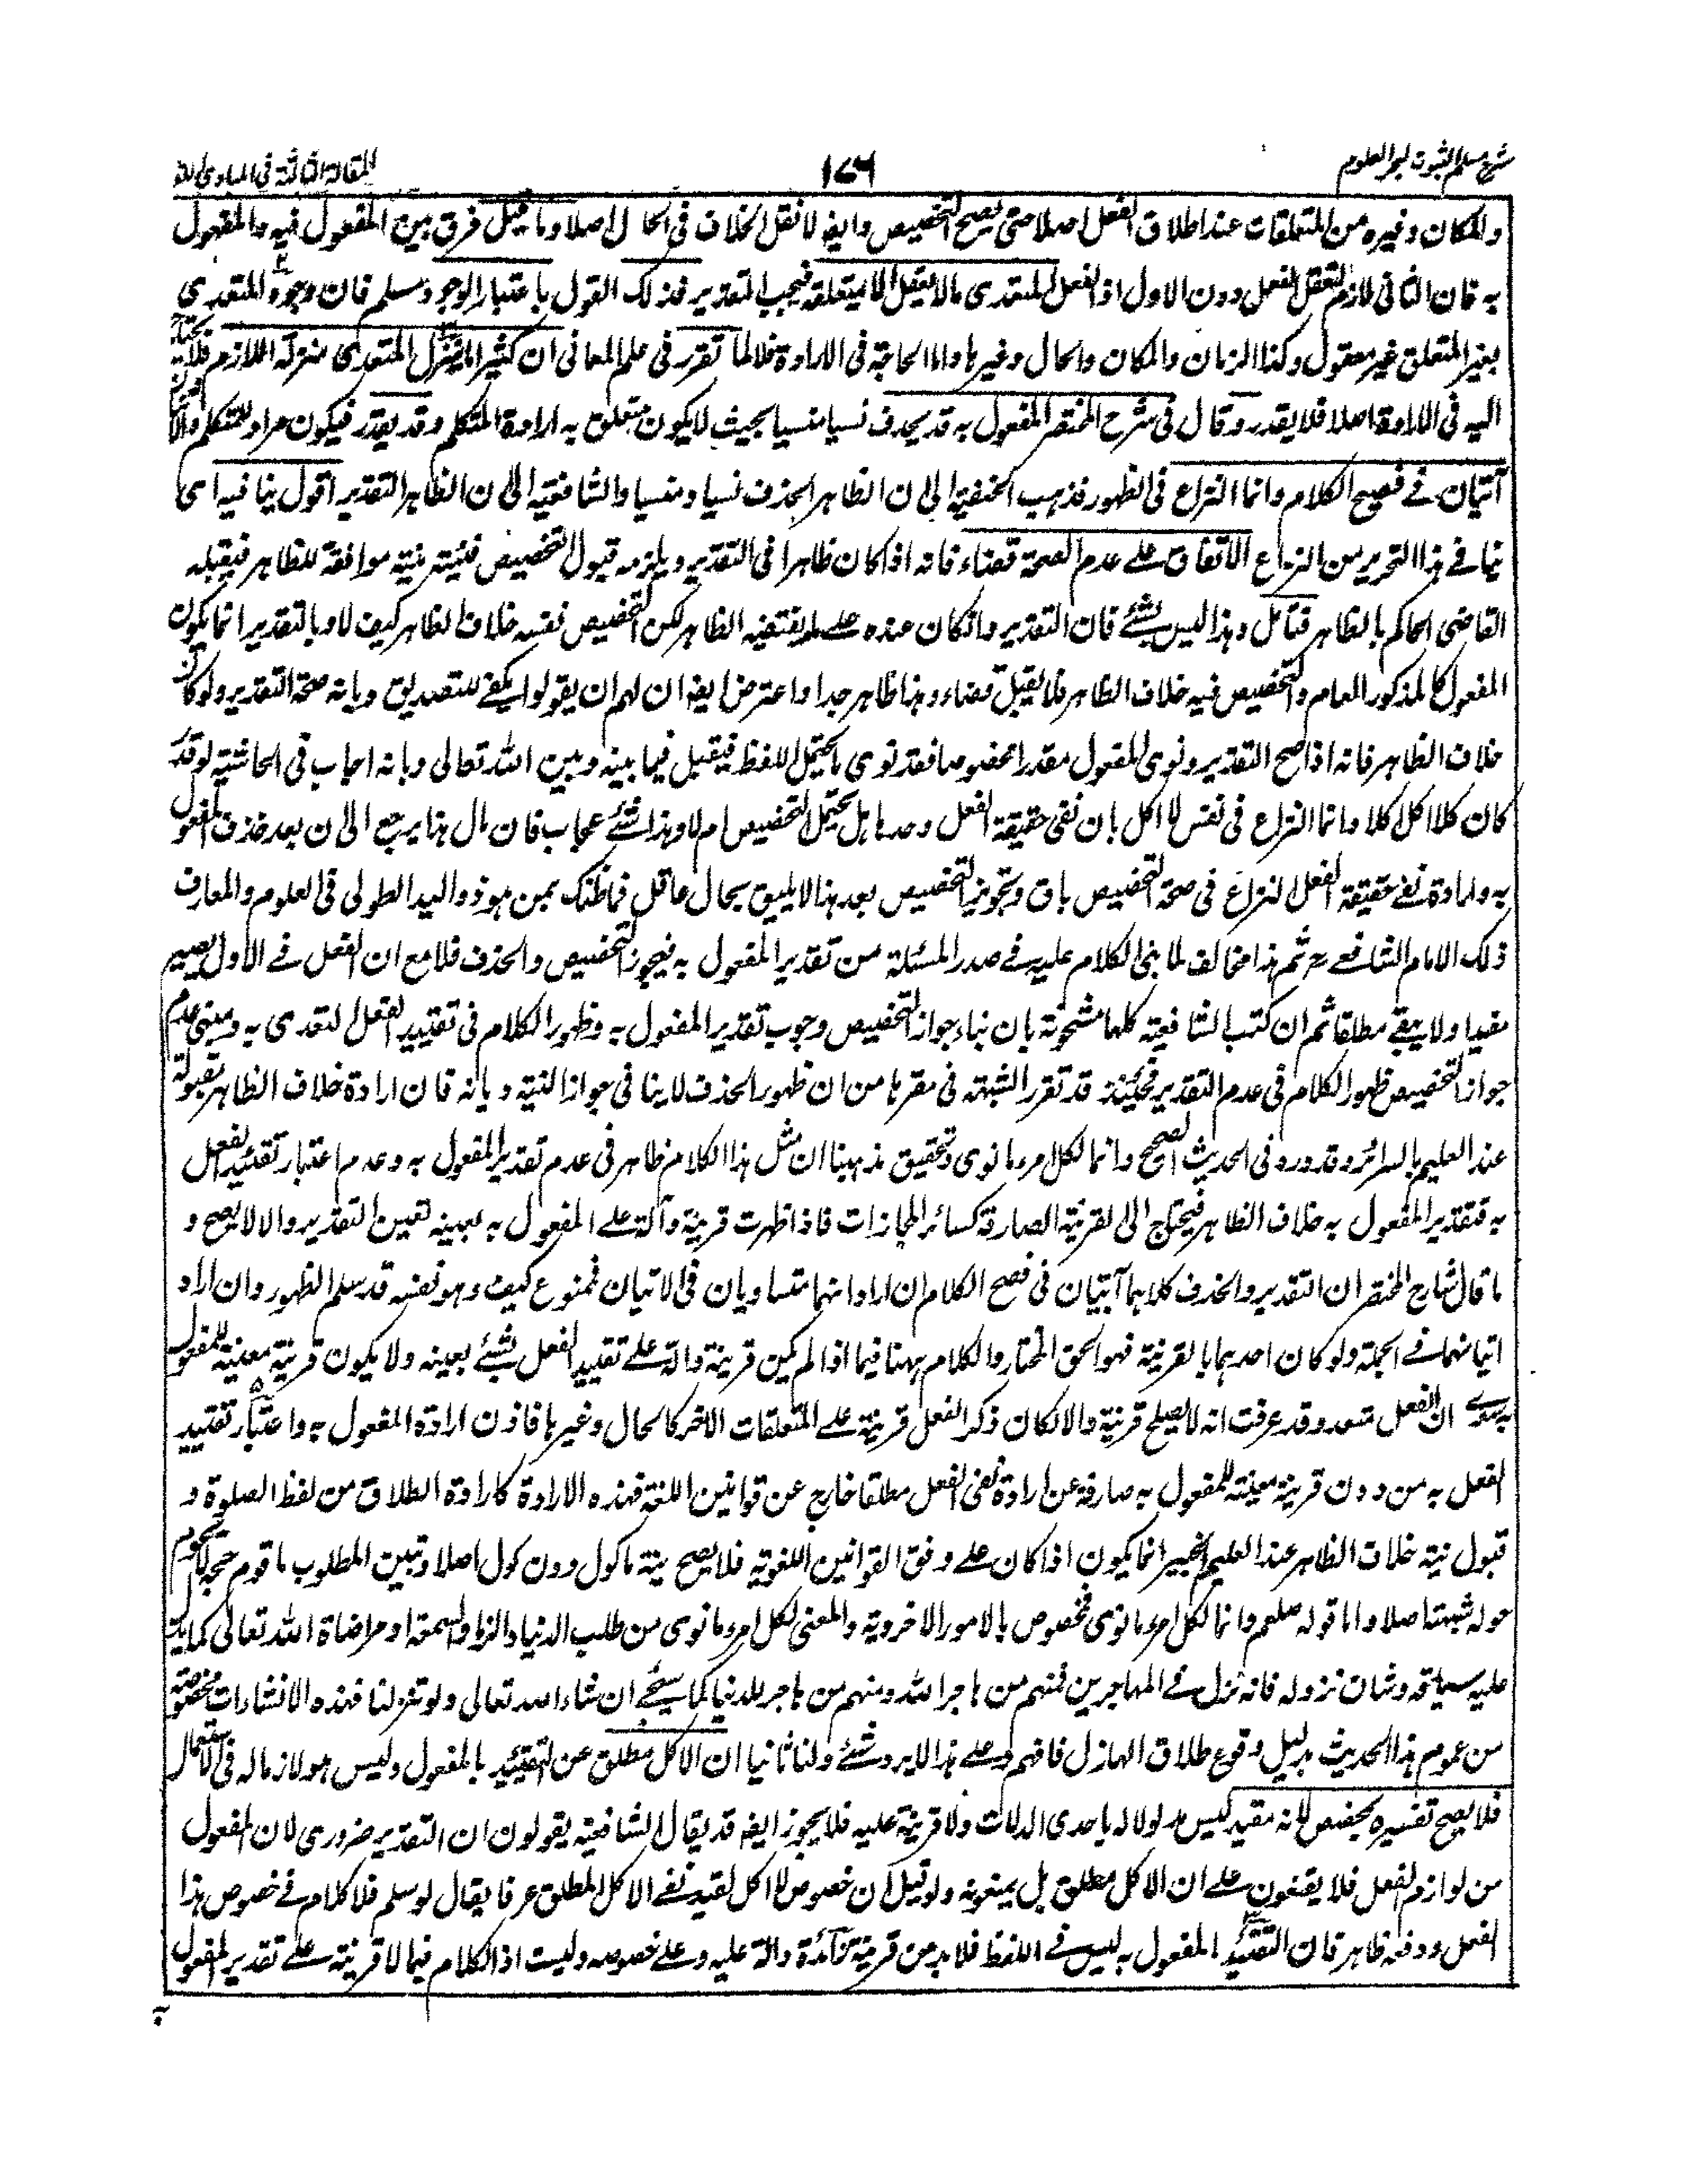 شرح مسلم الثبوت لبحر العلوم
١٧٦
المقالة الثالثة في المبادي
والمكان وغيره من المتعلقات عند اطلاق الفعل اصلا حتى يصح التخصيص وايضا لا نقل الخلاف في الحال اصلا وما قيل فرق بين المفعول فيه والمفعول
به فان الثاني لازم لتعقل الفعل دون الاول اذ الفعل المتعدي ما لا يعقل الا بمتعلقه فيجب التقدير فذلك القول باعتبار الوجود مسلم فان وجود المتعدي
بغير المتعلق غير معقول وكذا الزمان والمكان والحال وغيرها واما الحاجة في الارادة فلا لما تقرر في علم المعاني ان كثيرا ما ينزل المتعدي منزلة اللازم فلا يحتاج
اليه في الارادة اصلا فلا يقدر وقال في شرح المختصر المفعول به قد يحذف نسيا منسيا بحيث لا يكون متعلق به ارادة المتكلم وقد يقدر فيكون مراد المتكلم والامران
آتيان في فصيح الكلام وانما النزاع في الظهور فذهب الحنفية الى ان الظاهر الحذف نسيا ومنسيا والشافعية الى ان الظاهر التقدير اقول ينافيه اي
ينافي هذا التحرير من النزاع الاتفاق على عدم الصحة قضاء فانه اذا كان ظاهرا في التقدير ويلزمه قبول التخصيص فنيته نية موافقة للظاهر فيقبله
القاضي الحاكم بالظاهر فتأمل وهذا ليس بشئ فان التقدير وان كان عنده على ما يقتضيه الظاهر لكن التخصيص نفسه خلاف الظاهر كيف لا وبالتقدير انما يكون
المفعول كالمذكور العام والتخصيص فيه خلاف الظاهر فلا يقبل قضاء وهذا ظاهر جدا واعترض ايضا ان لهم ان يقولوا يكفي للتصديق ديانة صحة التقدير ولو كان
خلاف الظاهر فانه اذا صح التقدير ونوى المفعول مقدرا مخصوصا فقد نوى ما يحتمل اللفظ فيقبل فيما بينه وبين الله تعالى وبانه اجاب في الحاشية لو قدر
كان كلا اكل اكلا وانما النزاع في نفس لا اكل بان نفى حقيقة الفعل وحدها بل يحتمل التخصيص ام لا وهذا شئ عجاب فان مال هذا يرجع الى ان بعد حذف المفعول
به وارادة نفي حقيقة الفعل النزاع في صحة التخصيص باق وتجويز التخصيص بعد هذا لا يليق بحال عاقل فما ظنك بمن هو ذو اليد الطولى في العلوم والمعارف
ذلك الامام الشافعي رح ثم هذا مخالف لما بنى الكلام عليه في صدر المسئلة من تقدير المفعول به فيجوز التخصيص والحذف فلا مع ان الفعل في الاول يصير
مقيدا ولا يبقى مطلقا ثم ان كتب الشافعية كلها مشحونة بان بناء جواز التخصيص وجوب تقدير المفعول به وظهور الكلام في تقييد الفعل المتعدي به ومبنى عدم
جواز التخصيص ظهور الكلام في عدم التقدير فحينئذ قد تقرر الشبهة في مقرها من ان ظهور الحذف لا ينافي جواز النية ديانة فان ارادة خلاف الظاهر مقبولة
عند العليم بالسرائر وقد ورد في الحديث الصحيح وانما لكل امرء ما نوى وتحقيق مذهبنا ان مثل هذا الكلام ظاهر في عدم تقدير المفعول به وعدم اعتبار تقييد الفعل
به فتقدير المفعول به خلاف الظاهر فيحتاج الى القرينة الصارفة كسائر المجازات فاذا ظهرت قرينة دالة على المفعول به بعينه تعين التقدير والا لا يصح و
ما قال شارح المختصر ان التقدير والحذف كلاهما آتيان في فصح الكلام ان اراد انهما متساويان في الاتيان فممنوع كيف وهو نفسه قد سلم الظهور وان اراد
اتيانهما في الجملة ولو كان احدهما بالقرينة فهو الحق المختار والكلام ههنا فيما اذا لم يكن قرينة دالة على تقييد الفعل بشئ بعينه ولا يكون قرينة معينة للمفعول
به سوى ان الفعل متعد وقد عرفت انه لا يصلح قرينة والا لكان ذكر الفعل قرينة على المتعلقات الاخر كالحال وغيرها فاذن ارادة المفعول به واعتبار تقييد
الفعل به من دون قرينة معينة للمفعول به صارفة عن ارادة نفي الفعل مطلقا خارج عن قوانين اللغة فهذه الارادة كارادة الطلاق من لفظ الصلوة و
قبول نية خلاف الظاهر عند العليم الخبير انما يكون اذا كان على وفق القوانين اللغوية فلا يصح نية ماكول دون كول اصلا وتبين المطلوب باقوم حجة لا يحوم
حوله شبهة اصلا واما قوله صلعم وانما لكل امرء ما نوى فمخصوص بالامور الاخروية والمعنى لكل امرء ما نوى من طلب الدنيا والرياء والسمعة او مرضاة الله تعالى كما يدل
عليه سياقه وشان نزوله فانه نزل في المهاجرين فمنهم من هاجر لله ومنهم من هاجر للدنيا كما سيجئ ان شاء الله تعالى ولو تنزلنا فهذه الانشاءات مخصوصة
من عموم هذا الحديث بدليل وقوع طلاق الهازل فافهم وعلى هذا لا يرد شئ ولنا ثانيا ان الاكل مطلق عن التقييد بالمفعول وليس هو لازما له في الاستعمال
فلا يصح تفسيره بمخصص لانه مقيد ليس مدلولا له باحدى الدلالات ولا قرينة عليه فلا يجوز ايضا قد يقال الشافعية يقولون ان التقدير ضروري لان المفعول
من لوازم الفعل فلا يقفون على ان الاكل مطلق بل يمنعونه ولو قيل ان خصوص لا اكل لقيد نفي الاكل المطلق عرفا يقال لو سلم فلا كلام في خصوص هذا
الفعل ودفعه ظاهر فان التقييد المفعول به ليس في اللفظ فلا بد من قرينة زائدة دالة عليه وعلى خصوصه وليست اذ الكلام فيما لا قرينة على تقدير المفعول
به